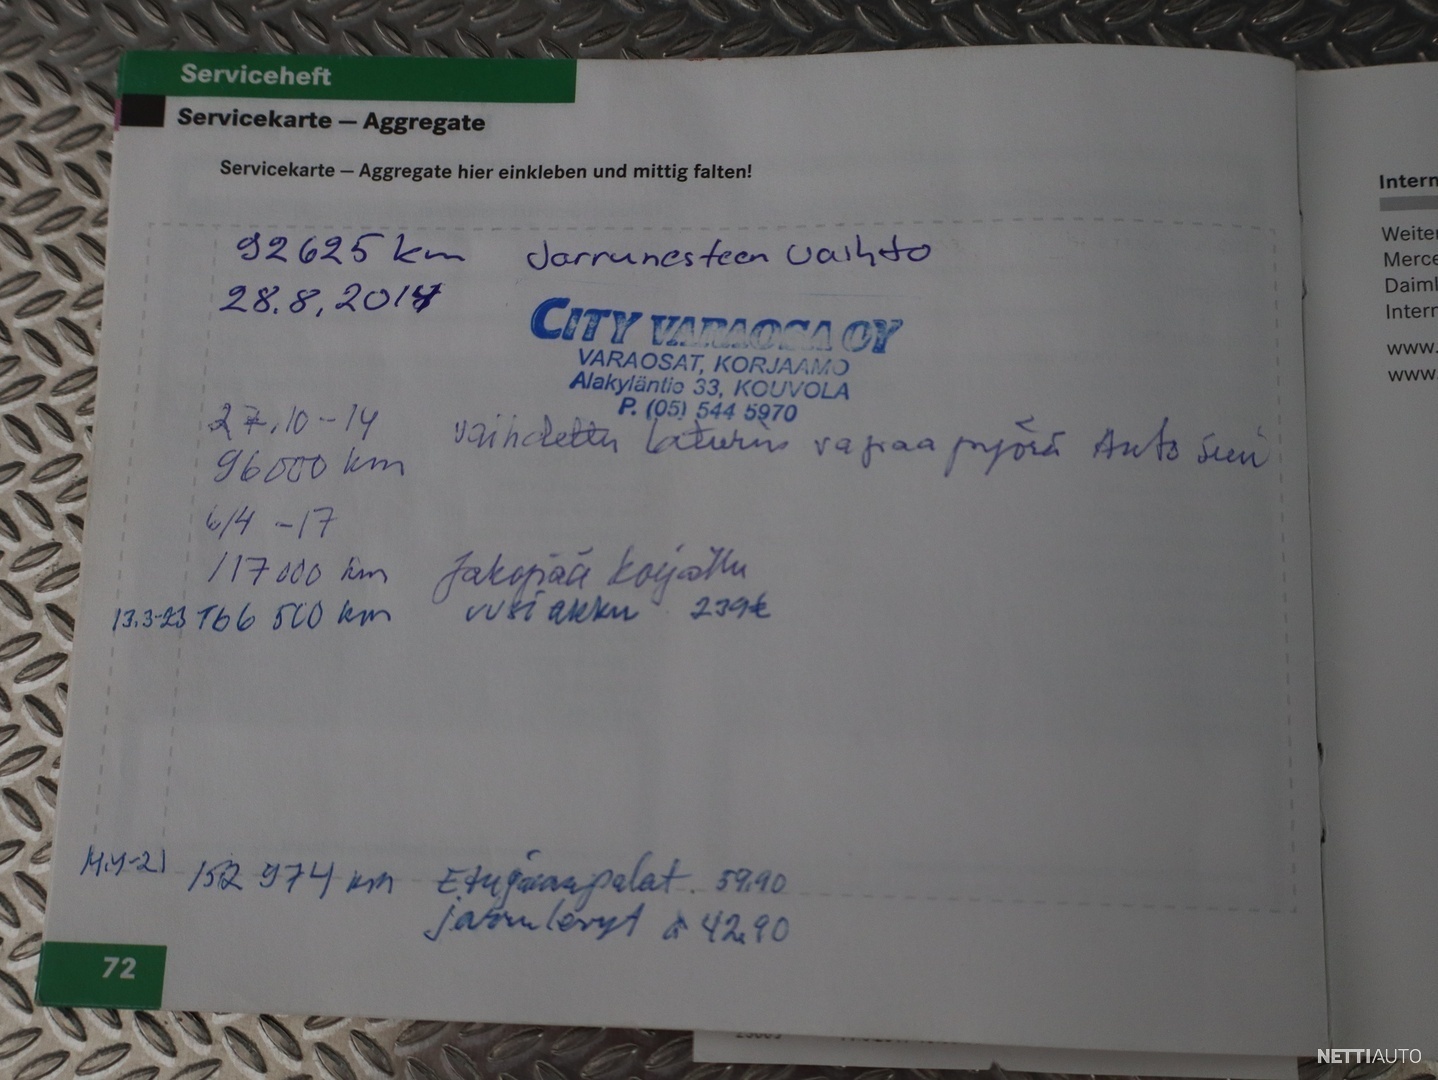 Serviceheft
Servicekarte – Aggregate
Servicekarte – Aggregate hier einkleben und mittig falten!
92625 km Jarrunesteen vaihto
28.8.2014
CITY VARAOSA OY
VARAOSAT, KORJAAMO
Alakyläntie 33, KOUVOLA
P. (05) 544 5970
27.10-14 vaihdettu laturin vapaa pyörä Auto
96000 km
6/4 -17
117000 km Jakopää korjattu
13.3-23 166 500 km uusi akku 239€
152 974 km Etujarrupalat. 59.90
jarrulevyt á 42.90
72
Intern
Weiter
Merce
Daiml
Intern
www.
www.
NETTIAUTO